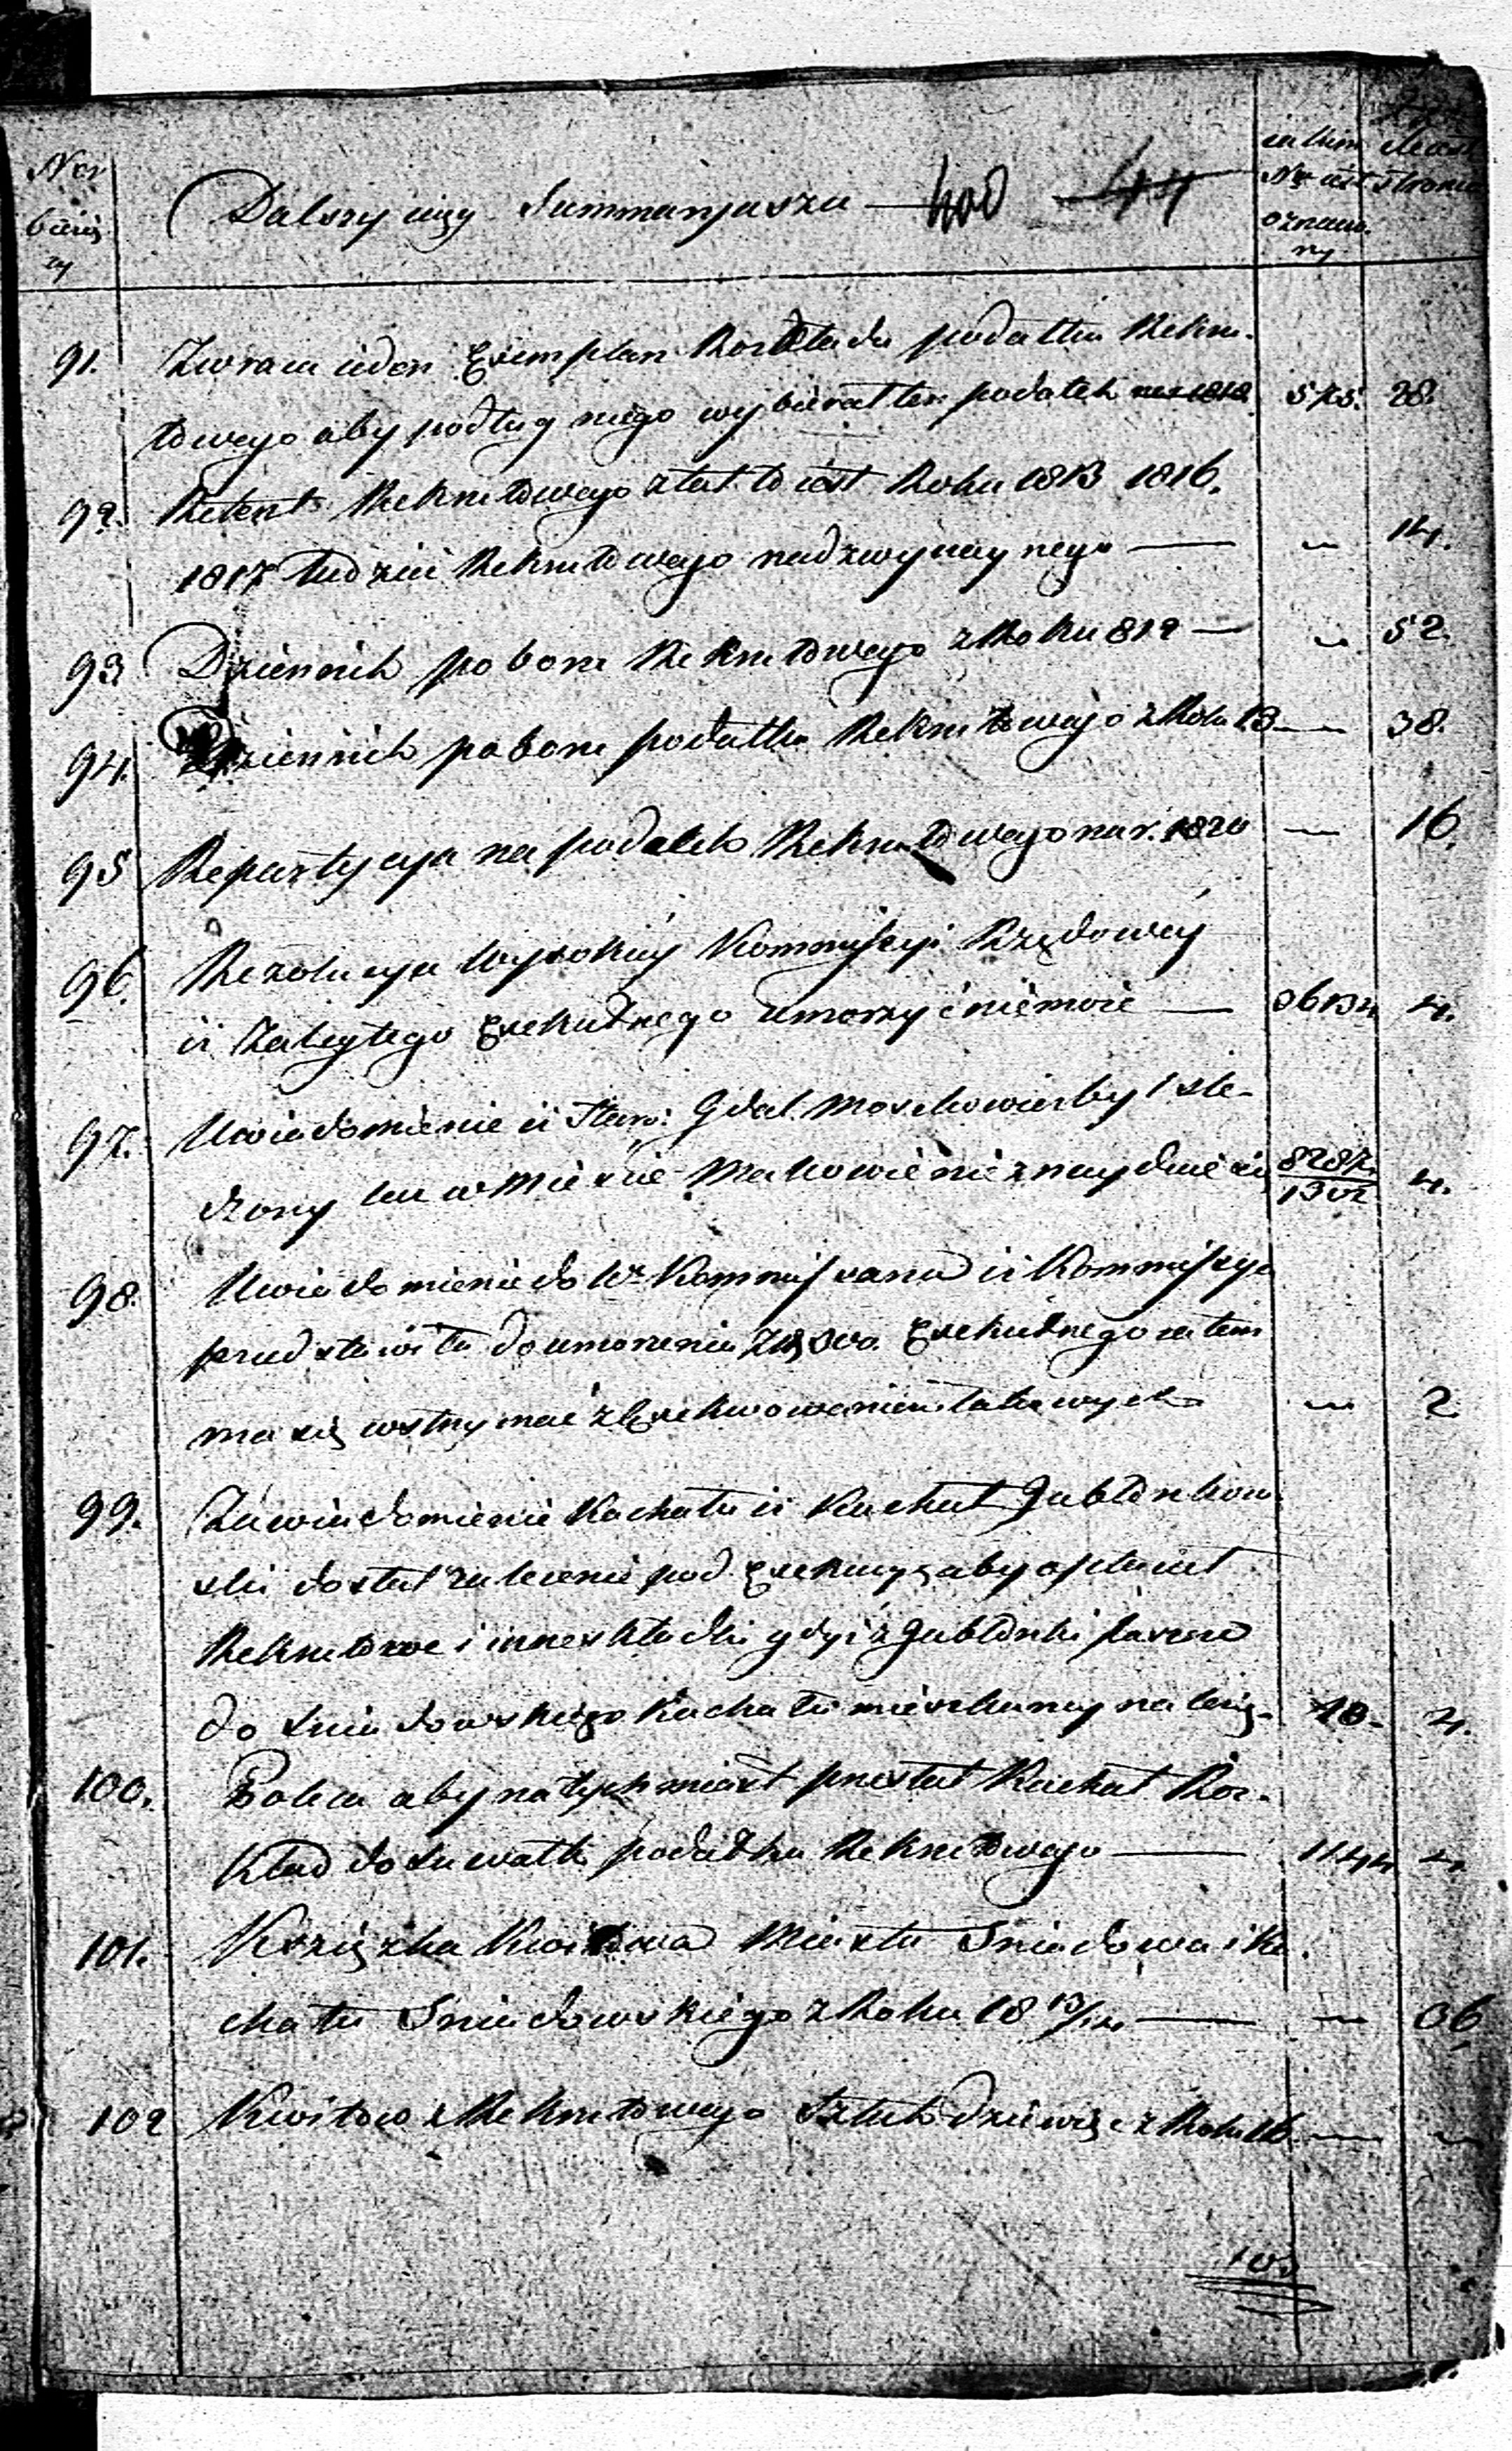 Nor
bieżą
cy
Dalszy ciąg Summaryusza
iakim
Nr iest
oznaczo-
ny
stronic
91. Zwraca ieden Exemplarz Rozkładu podatku Rekru-
towego aby podług niego wybierał ten podatek 575. 28.
92. Retent Rekrutowego z lat to iest Roku 1813 1816.
1817 tudzież Rekrutowego nadzwyczaynego — „ 14.
93 Dziennik poboru Rekrutowego z Roku 819 — „ 52.
94. Dziennik poboru podatku Rekrutowego z Roku 13 — 38.
95 Repartycyja na podatek Rekrutowego na r. 1820 — 16.
96. Rezolucya Wysokiey Kommissyi Rządowey
iż Zaległego Exekutnego umorzyć niemoże — 4.
97. Uwiadomienie iż Staro: Gdal Moszkowicz by śle-
dzony lecz w Mieście Makowie nieznayduie się 8287. 4.
98. Uwiadomienie do Wo Kommissarza iż Kommissya
przedstawiła do umorzenia Exekutnego zatem
ma się wstrzymać z Exekwowaniem takowych „ 2
99. Zawiadomienie Kachału iż Kachał Jabłonkow-
ski dostał zalecenie pod Exekucyą aby opłacał
Rekrutowe i inne składki gdyż z Jabłonki
do Sniadowskiego Kachału mieszkańcy należą- 18- 4.
100. Poleca aby natychmiast przesłał Kachał Roz-
kład do Suwałk podatku Rekrutowego — 1144 4.
101. Książka Kwitowa Miasta Sniadowa i Ka-
chału Sniadowskiego z Roku 18 13/14 — „ 36
102 Kwitów z Rekrutowego Sztuk dziewięć z Roku 16. — „